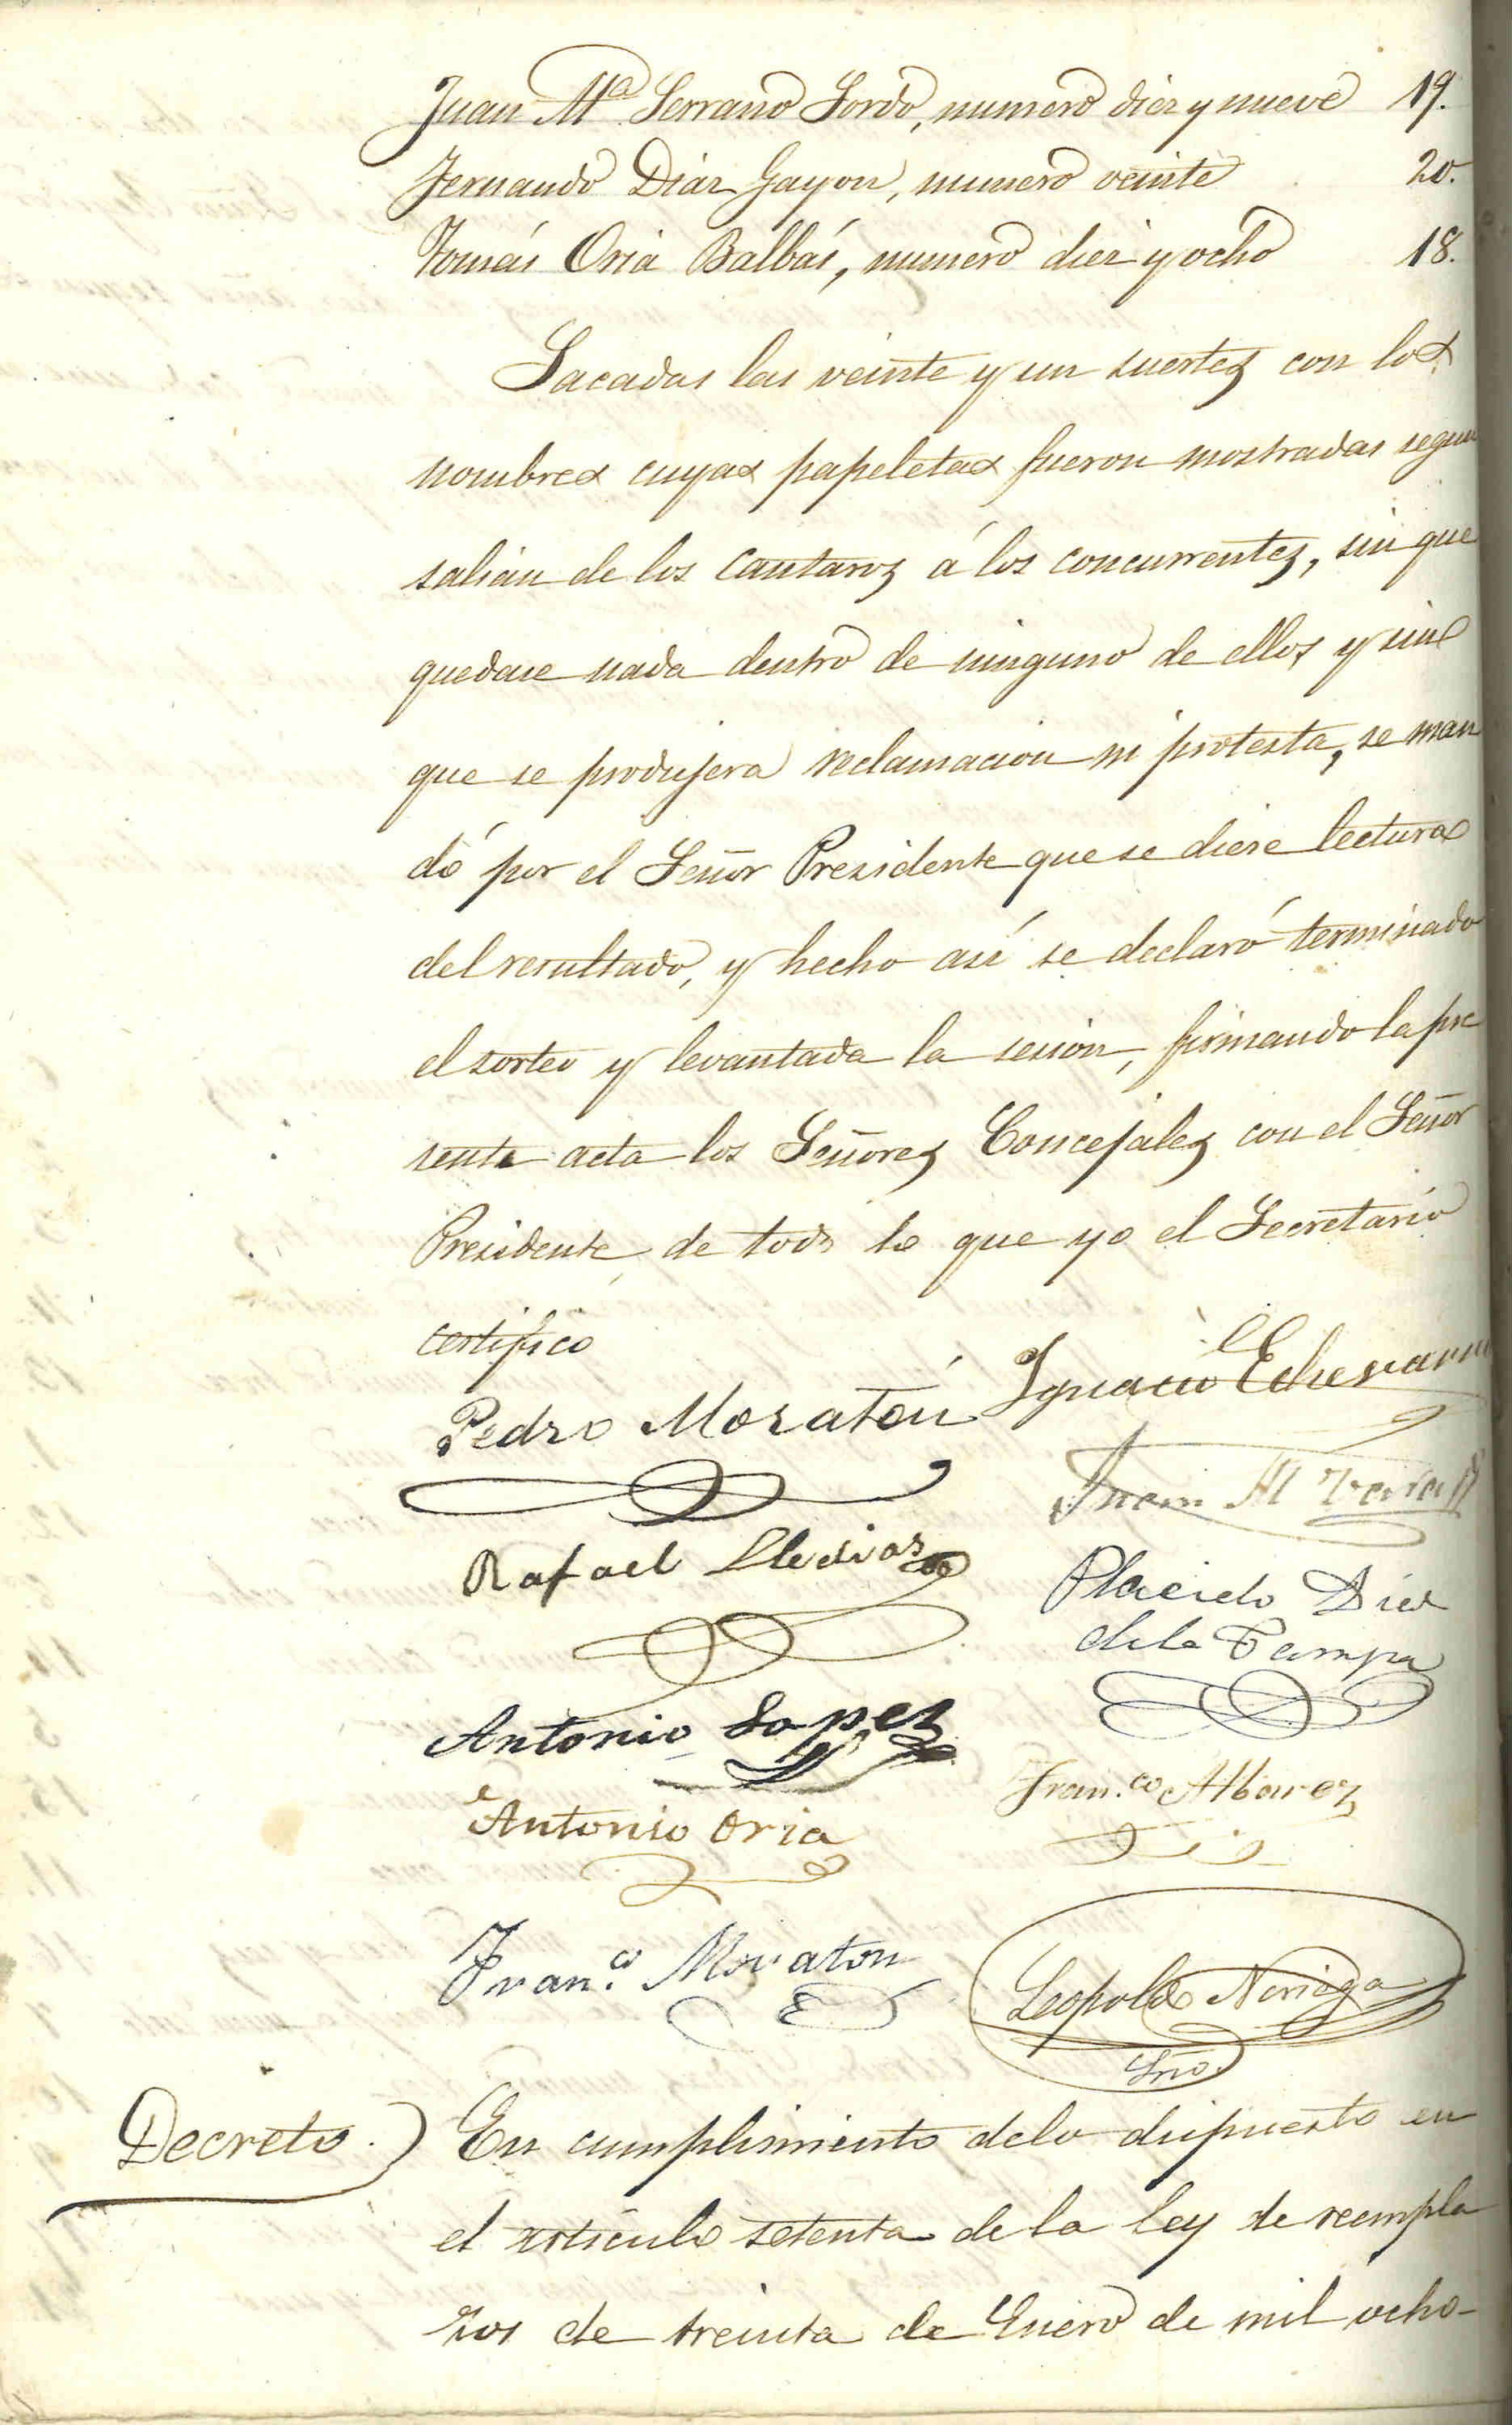 Juan Mª Serrano Sordo, numero diez y nueve 19.
Fernando Diaz Gayon, numero veinte 20.
Tomás Oria Balbás, numero diez y ocho 18.
Sacadas las veinte y un suertes con los
nombres cuyas papeletas fueron mostradas segun
salian de los cantaros á los concurrentes, sin que
quedase nada dentro de ninguno de ellos y sin
que se produjera reclamacion ni protesta, se man
dó por el Señor Presidente que se diese lectura
del resultado, y hecho así se declaró terminado
el sorteo y levantada la sesion, firmando la pre
sente acta los Señores Concejales con el Señor
Presidente, de todo lo que yo el Secretario
certifico
Pedro Moratón Ignacio Echevarria
Juan M
Rafael
Placido Diez
de la Campa
Antonio Lopez
Fran.co Albarez
Antonio Oria
Fran.co Moraton
Leopoldo Noriega
Srio.
Decreto.) En cumplimiento de lo dispuesto en
el articulo setenta de la ley de reempla
zos de treinta de Enero de mil ocho-